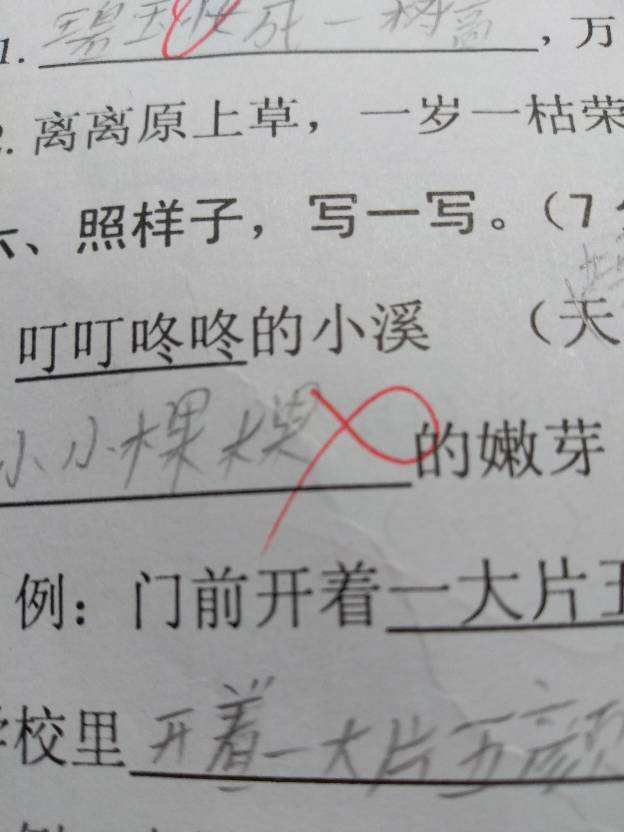 1. 碧玉妆死一树高，万
2. 离离原上草，一岁一枯荣
六、照样子，写一写。（7分
叮叮咚咚的小溪 （天
小小棵棵的嫩芽
例：门前开着一大片五
学校里开着一大片五颜